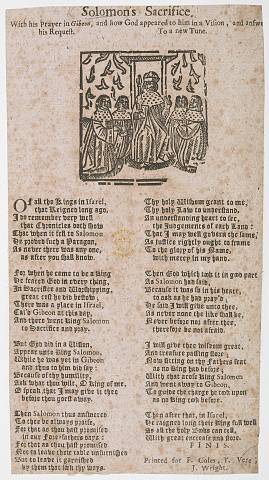 Solomon's Sacrifice,
With his Prayer in Gibeon, and how God appeared to him in a Vision, and
his Request. To a new Tune.
Of all the Kings in Israel,
that Reigned long ago,
I do remember very well
that Chronicles doth show
That when it fell to Salomon
He proved such a Paragon,
As never there was any one,
as after you shall know.
For when he came to be a King
He feared God in every thing,
In Sacrifice and Worshipping,
great cost he did bestow:
There was a place in Israel,
Cal'd Gibeon at this day,
And there went King Salomon
to Sacrifice and pray.
But God did in a Vision,
Appear unto King Salomon,
While he was yet in Gibeon
and thus to him did say:
Because of thy humility,
Ask what thou wilt, O King of me,
O speak that I may give it thee
before thou goest away.
Then Salomon thus answered
To thee be always praise,
For that thou hast preserved
in our Fore-fathers days:
For that thou hast preserved
Not to leave their table unfurnished
But to leave it garnished
by them that left thy ways.
Thy holy Wisdom grant to me,
Thy holy Law to understand,
An understanding heart to see,
the Judgements of each Land:
That I may well govern the same,
As justice rightly ought to frame
To the glory of thy Name,
with mercy in my hand.
Then God which took it in good part
As Salomon had said,
Because it was so in his heart,
to ask as he had pray'd:
He said I will give unto thee,
As never none the like shall be,
Never before nor after thee,
therefore be not afraid.
I will give thee wisdom great,
And treasure passing store
Now sitting on thy fathers seat
as no King had before;
With that arose King Salomon
And went away to Gibeon,
To guide the charge he took upon
as no King took before.
Then after that, in Israel,
He reigned long their King full well
As all the holy Book can tell,
With great encrease and store.
FINIS.
Printed for F. Coles, T. Vere,
J. Wright.